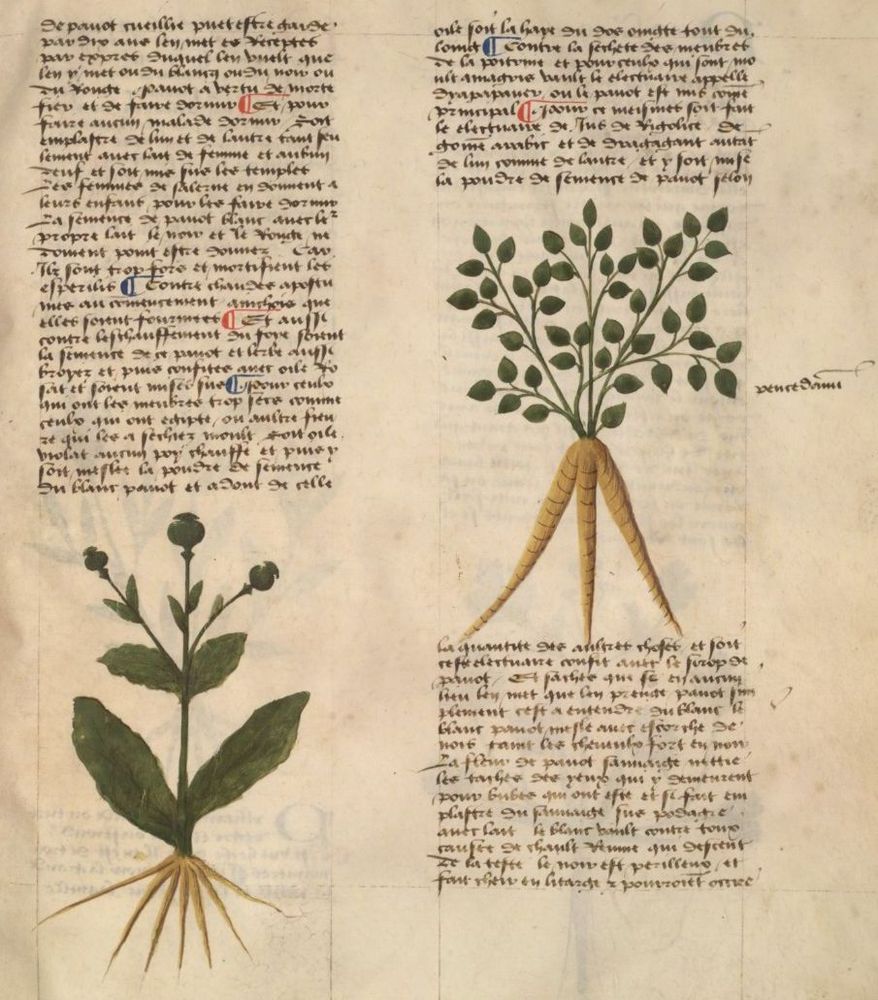 de pauot cueillie puet estre garde
par dix ans len met es Receptes
par expres duquel len vuelt que
len y met ou du blancq ou du noir ou
du Rouge. Pauot a vertu de morte
fier et de faire dormir ¶ Et pour
faire aucun malade dormir soit
emplastre de lun et de lautre tant seu
lement auec lait de femme et aubun
deuf et soit mis sus les temples
Les femmes de salerne en donnent a
leurs enfans pour les faire dormir
La semence de pauot blanc auec leᵘʳ
propre lait le noir et le Rouge ne
doiuent point estre donnez Car
Ilz sont trop fors et mortifient les
esperilis ¶ Contre chaudes apostu
mes au comencement ainchois que
elles soient fourmees ¶ Et aussi
contre leschauffement du foye soient
la semence de ce pauot et lerbe aussi
broyez et puis confites auec oile Ro
sat et soient mises sus ¶ Pour ceulx
qui ont les menbres trop secs comme
ceulx qui ont etipte, ou aultre fieu
re qui les a sechiez moult Soit oile
violat aucun poy chauffe et puis y
soit mesler la pouldre de semence
du blanc pauot et adont de celle
oile soit la haye du dos oingte tout du
loing ¶ Contre la sechete des menbres
de la poitrine et pour ceulx qui sont mo
ult amagris vault le electuaire appelle
dyapapauer, ou le pauot est mis come
principal ¶ Pour ce meismes soit fait
le electuaire de Jus de Rigolice de
gome arabic et de dragagant autāt
de lun comme de lautre et y soit mise
la poudre de semence de pauot selon
pencedanū
la quantite des aultres choses et soit
cest electuaire confit auec le sirop de
pauot. Et saches que se en aucun
lieu len met que len prenge pauot sim
plement cest a entendre du blanc le
blanc pauot mesle auec escorche de
nois taint les cheueulx fort en noir
La fleur de pauot sauuaige nettie
les taches des yeux qui y demeurent
pour bubes qui ont este et se fait em
plastre du sauuaige sus podagre
auec lait le blanc vault contre toux
causee de chault Reume qui descent
de la teste le noir est perilleux et
fait cheir en litarge ⁊ pourroiēt occire